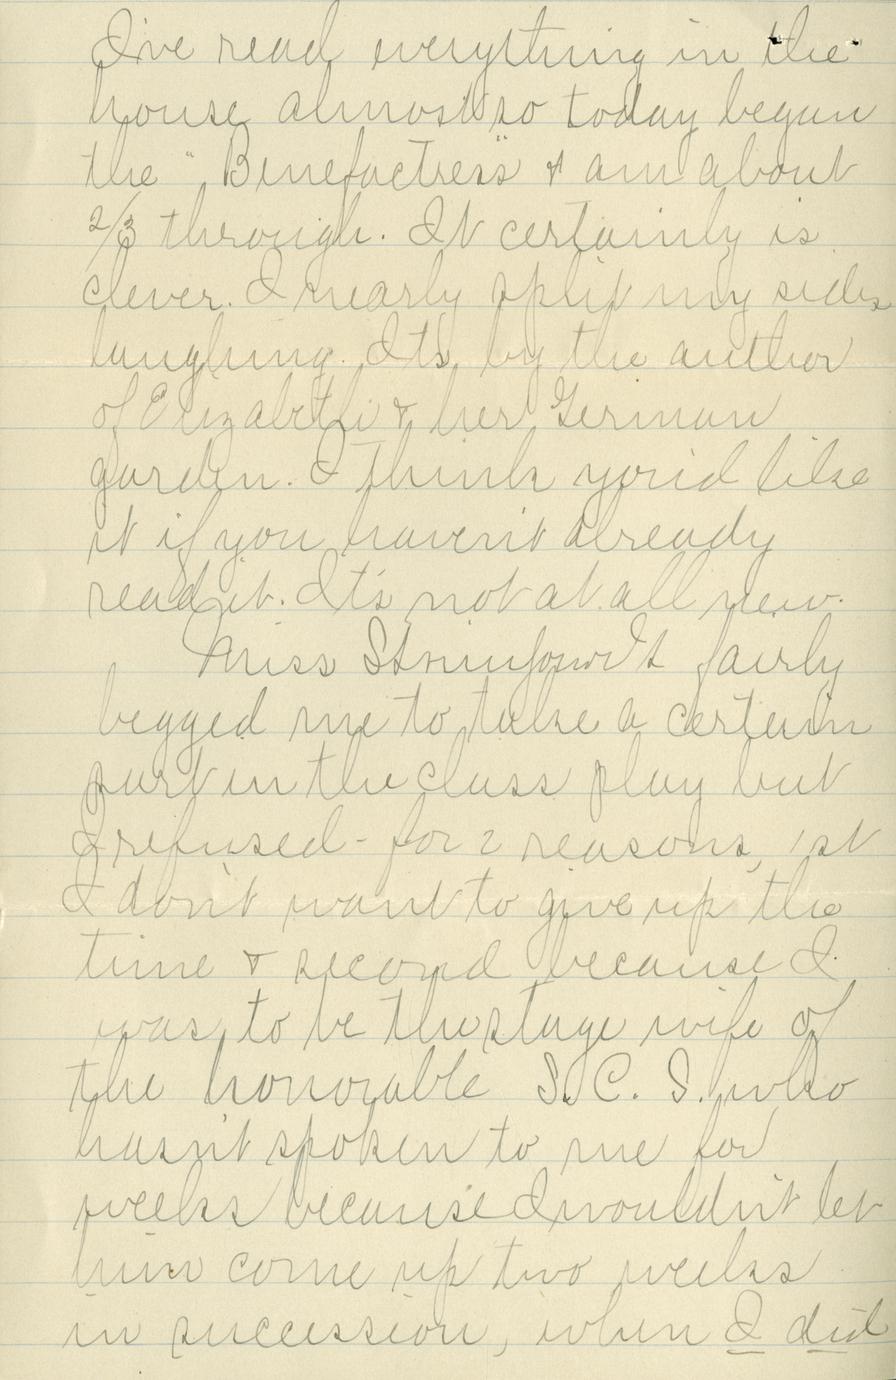 I've read everything in the
house almost so today began
the "Benefactress" & am about
2/3 through. It certainly is
clever. I nearly split my sides
laughing. It's by the author
of Elizabeth & her German
garden. I think you'd like
it if you haven't already
read it. It's not at all new.
Miss fairly
begged me to take a certain
part in the class play but
I refused - for 2 reasons, 1st
I don't want to give up the
time & second because I
was to be the stage wife of
the honorable S. C. S. who
hasn't spoken to me for
weeks because I wouldn't let
him come up two weeks
in succession, when I did